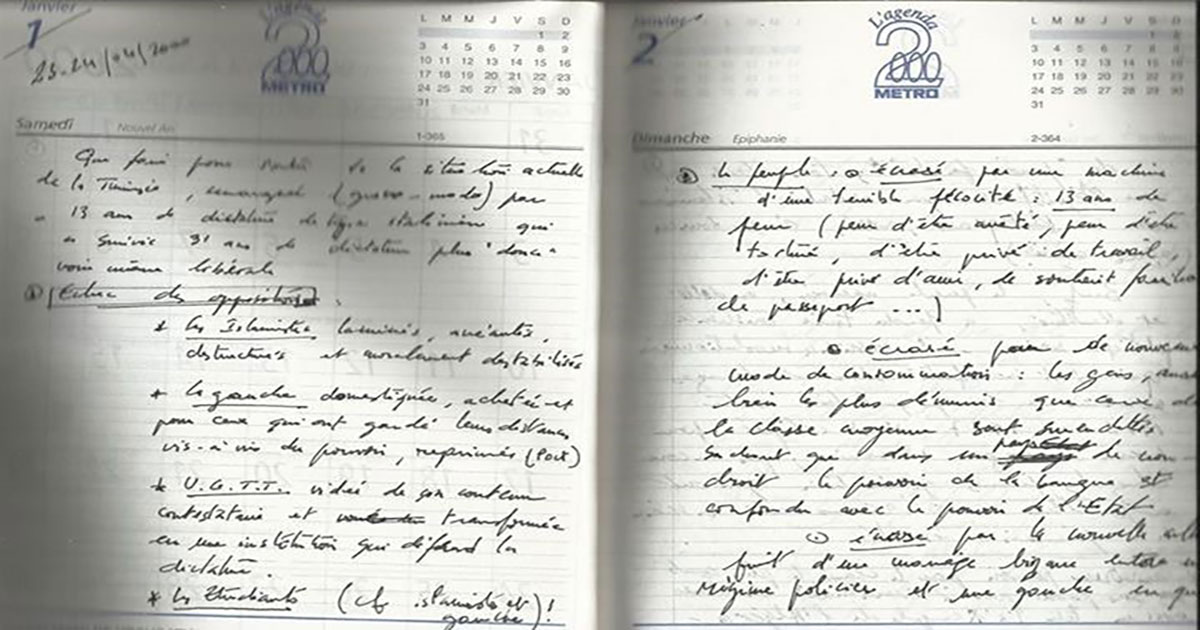 Janvier
1
23.24/04/2000
L'agenda
2000
METRO
L M M J V S D
1 2
3 4 5 6 7 8 9
10 11 12 13 14 15 16
17 18 19 20 21 22 23
24 25 26 27 28 29 30
31
Samedi Nouvel An
1-365
Que faire pour sortir de la situation actuelle
de la Tunisie, (grosso-modo) par
13 ans de dictature de type stalinienne qui
a suivie 31 ans de dictature plus "douce"
voire même libérale
Echec des oppositions :
* Les Islamistes laminés, anéantis,
destructurés et moralement destabilisés
* La gauche domestiquée, achetée et
pour ceux qui ont gardé leurs distances
vis-à-vis du pouvoir, reprimés (Poct)
* U.G.T.T. vidée de son contenu
contestataire et transformée
en une institution qui défend la
dictature.
* Les Etudiants (cf. islamistes et
gauche)!
Janvier
2
L'agenda
2000
METRO
L M M J V S D
1 2
3 4 5 6 7 8 9
10 11 12 13 14 15 16
17 18 19 20 21 22 23
24 25 26 27 28 29 30
31
Dimanche Epiphanie
2-364
Le peuple : o écrasé par une machine
d'une terrible férocité : 13 ans de
peur (peur d'être arrêté, peur d'être
torturé, d'être privé de travail,
d'être privé d'amis, de soutient
de passeport ...)
o écrasé par de nouveau
mode de consommation : les gens,
bien les plus démunis que ceux
la classe moyenne sont surendettés
sachant que dans un pays de non
droit le pouvoir de la banque est
confondu avec le pouvoir de l'Etat
o écrasé par la nouvelle
fruit d'une mariage bizarre entre
régime policier et une gauche en